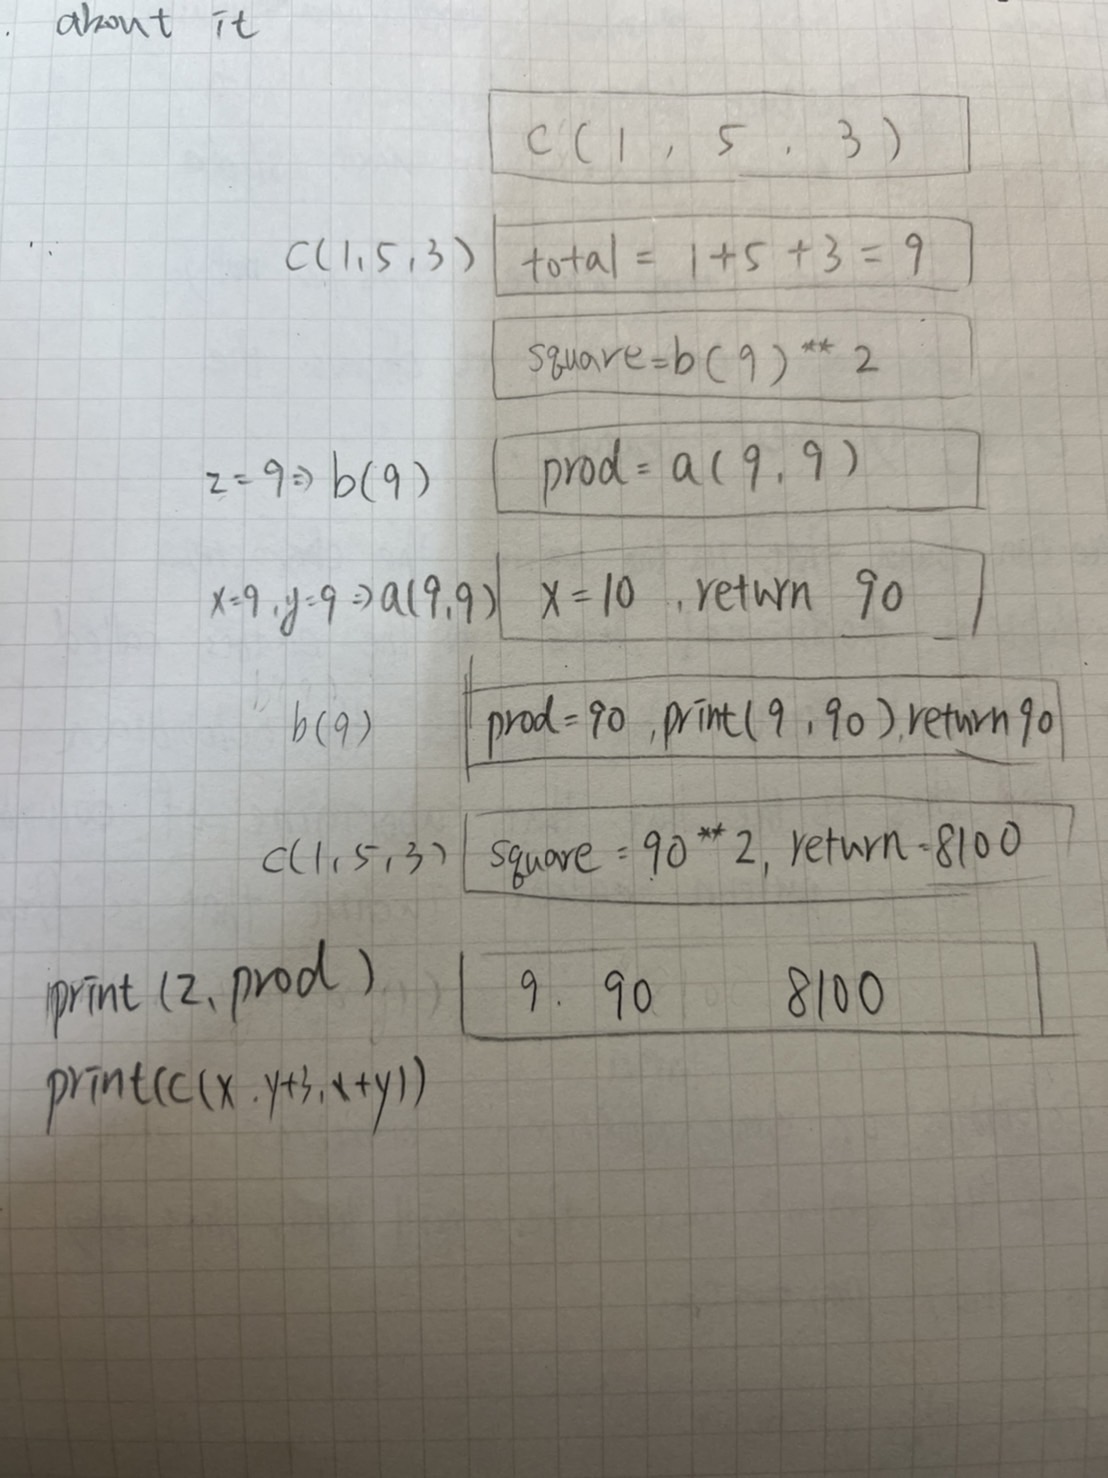 . about it
C(1, 5, 3)
C(1,5,3) total = 1+5+3=9
square=b(9)**2
z=9⇒b(9) prod=a(9,9)
x=9,y=9⇒a(9,9) x=10, return 90
b(9) prod=90, print(9,90), return 90
c(1,5,3) square=90**2, return 8100
print(z, prod) 9. 90 8100
print(c(x.y+3,x+y))